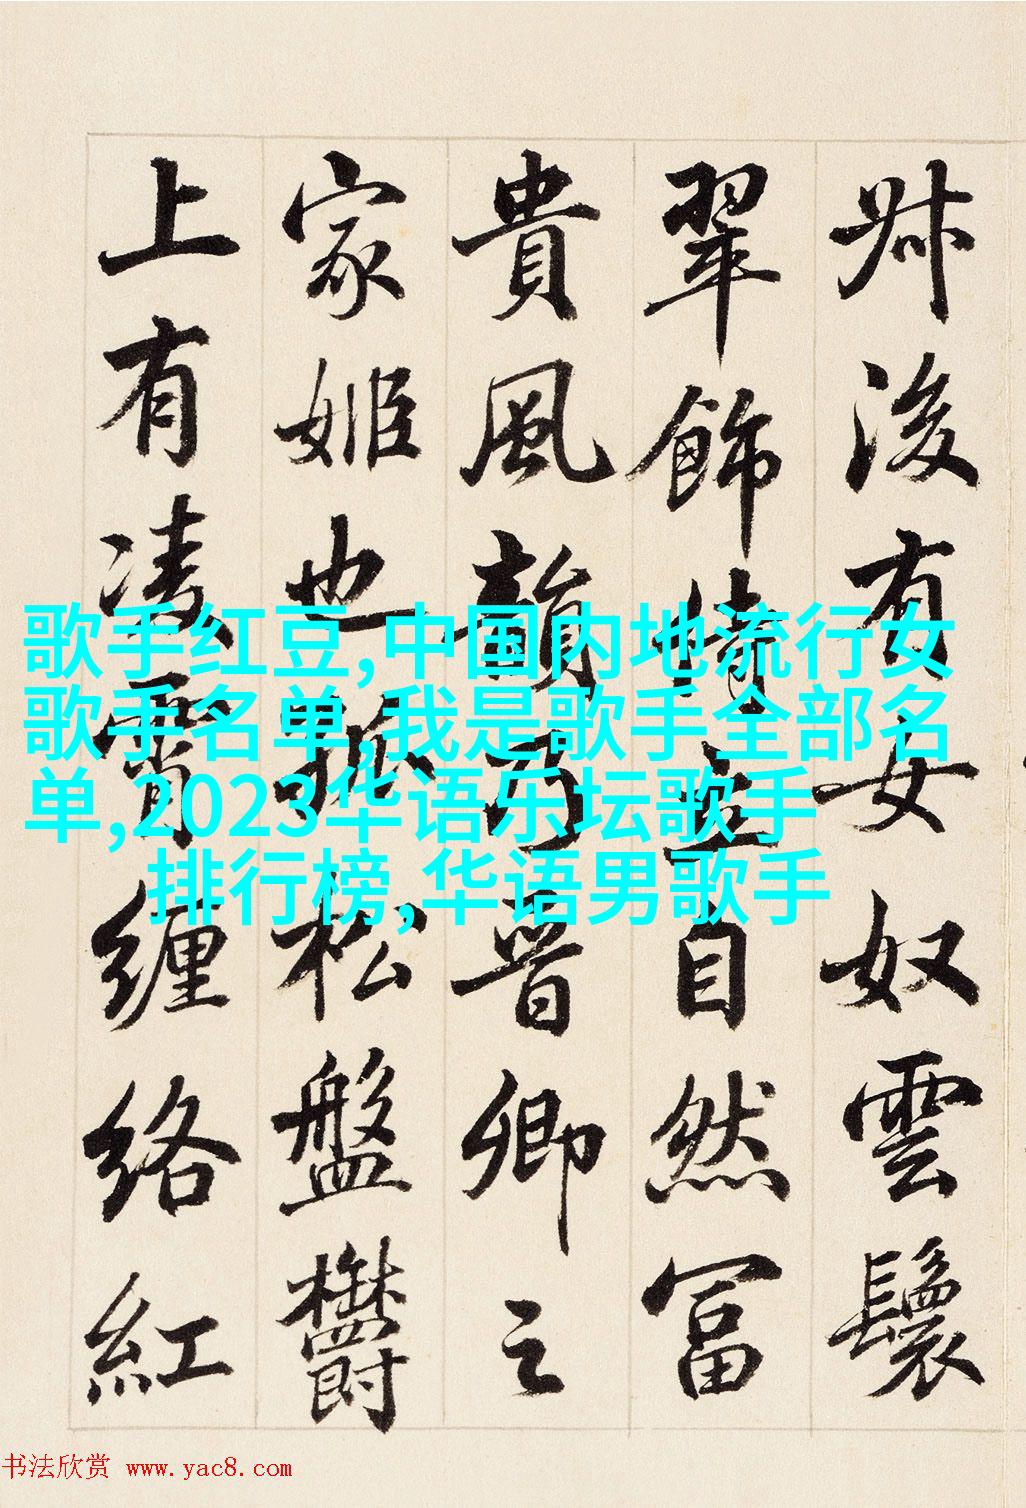 牀後有女奴雲鬟
翠飾倚立自然富
貴風韻乃晉卿之
家姬也孤松盤鬱
上有凌霄纏絡紅
歌手红豆,中国内地流行女
歌手名单,我是歌手全部名
单,2023华语乐坛歌手
排行榜,华语男歌手
书法欣赏 www.yac8.com